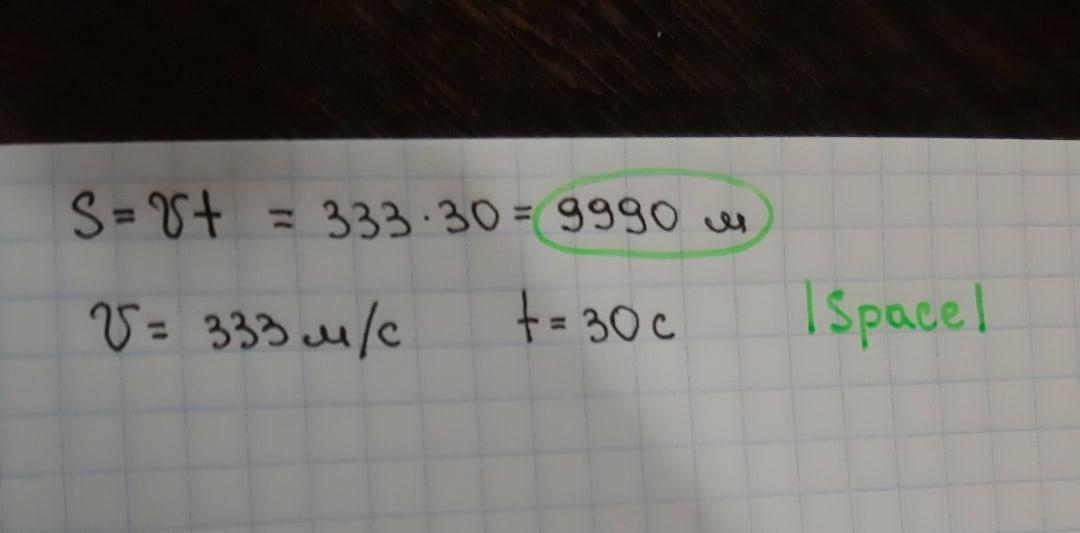 S = vt = 333 · 30 = 9990 м
v = 333 м/с t = 30 с |Space|